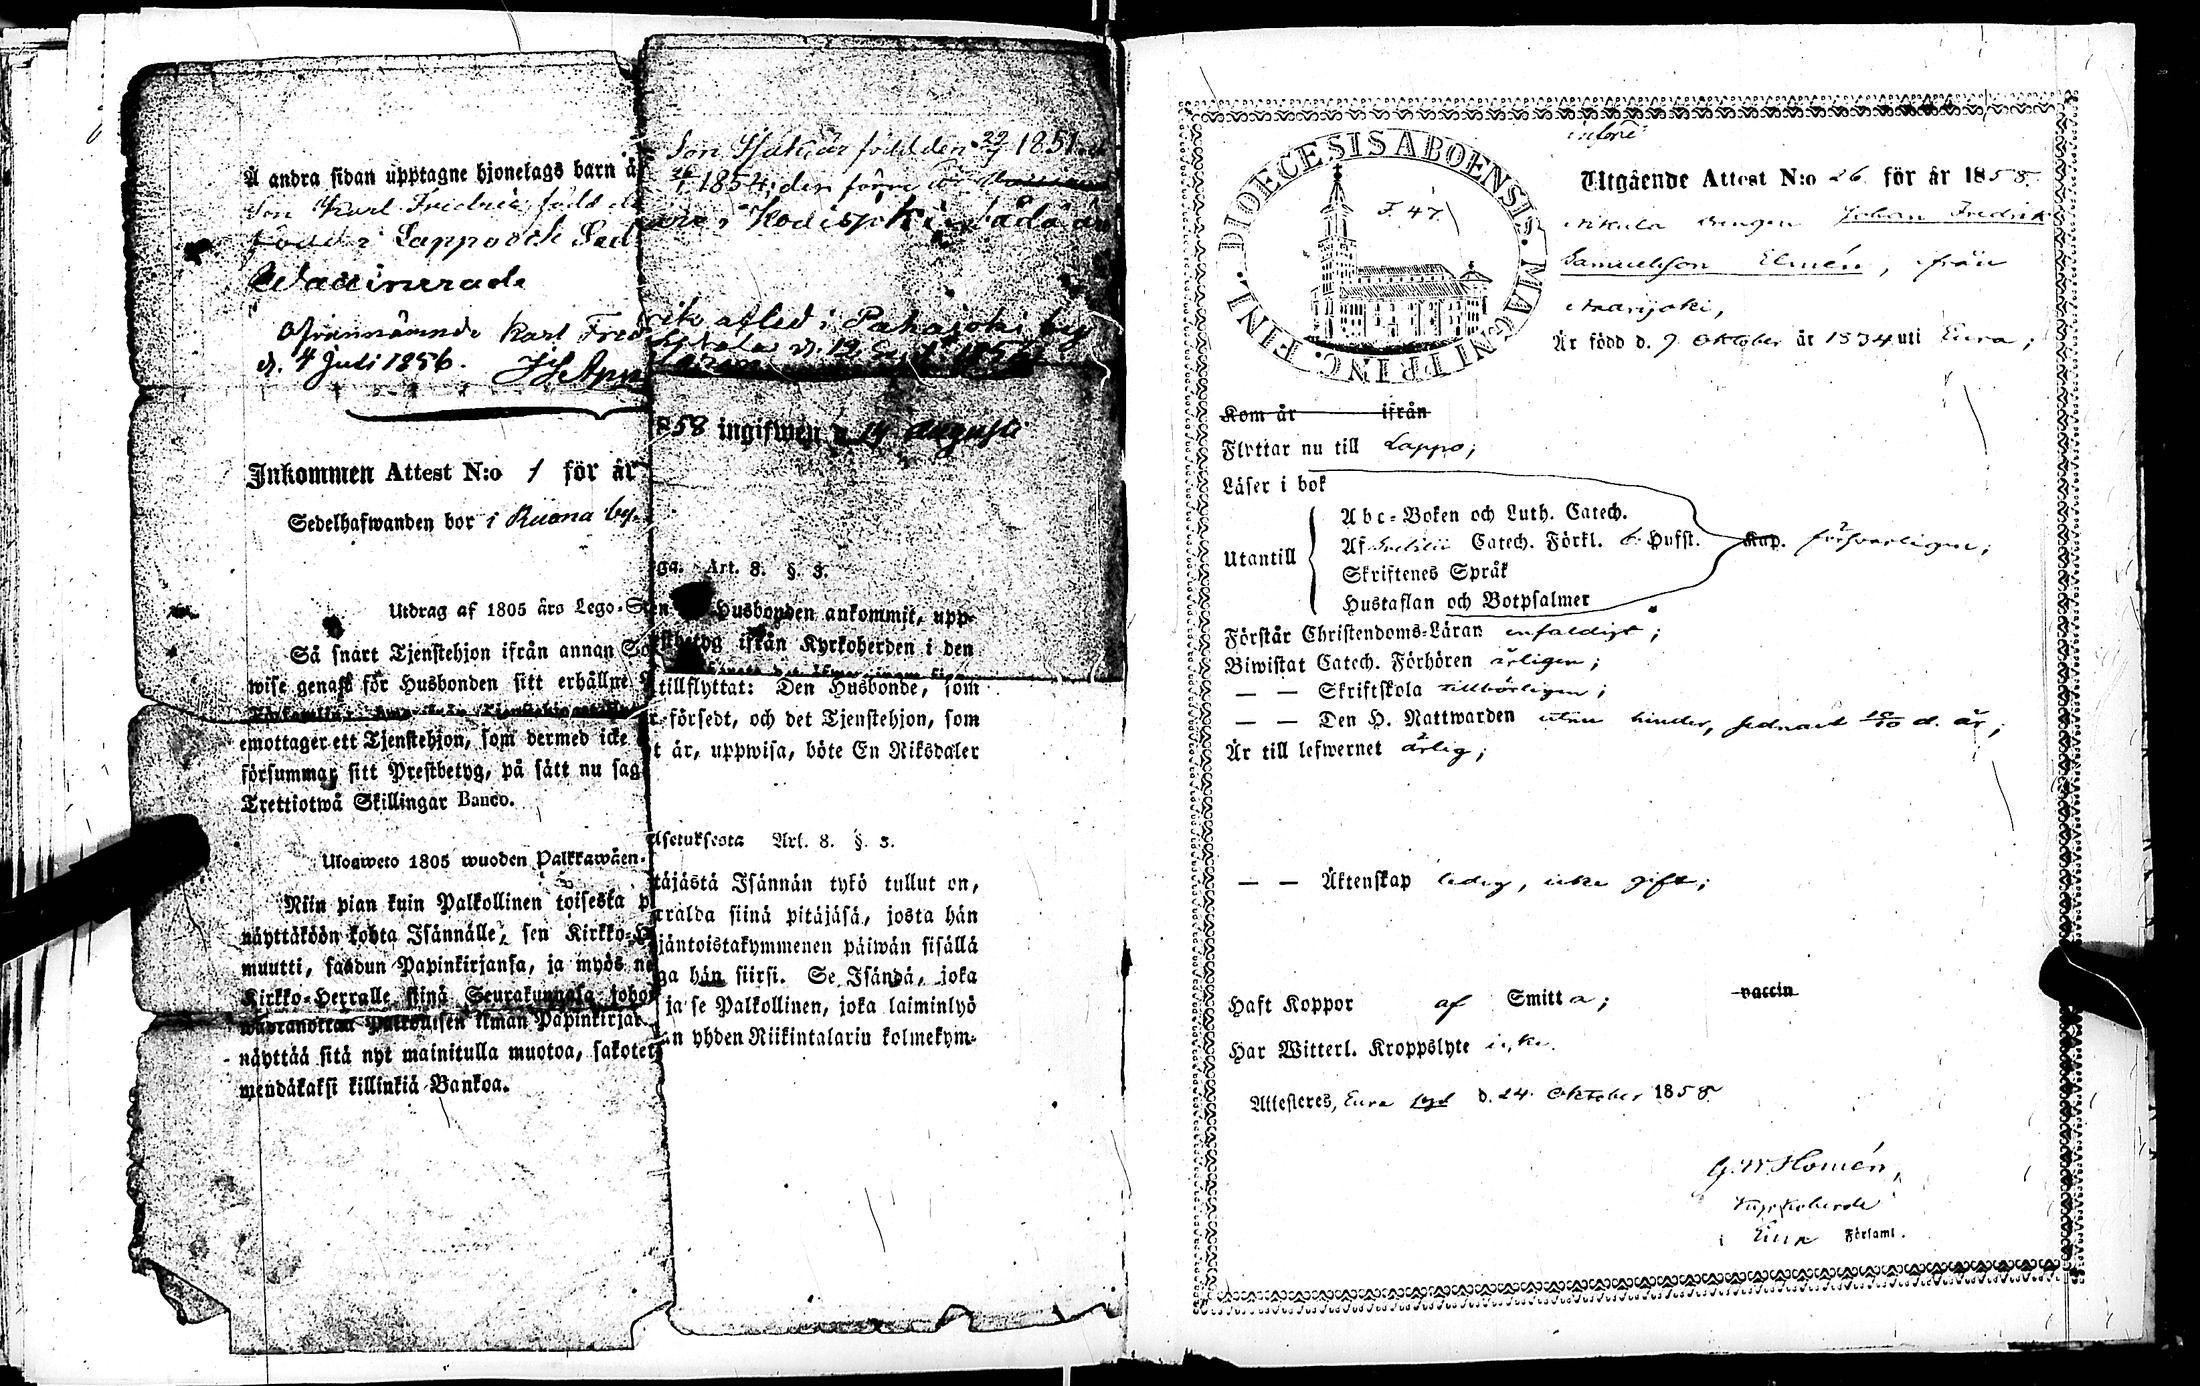 Å andra sidan upptagne hjonelags barn ä
Son Karl Fredric född d
född i Lappo och Sed
Waccinerade
Ofvannämnde Karl Fred
d. 4 Juli 1856.
Inkommen Attest N:o 1 för år
Sedelhafwanden bor i Ruona by.
Utdrag af 1805 års Lego-S
Så snart Tjenstehjon ifrån annan So
wise genast för Husbonden sitt erhållne
emottager ett Tjenstehjon, som dermed icke
försummar sitt Prestbetyg, på sätt nu sag
Trettiotwå Skillingar Banco.
Ulosweto 1805 wuoden Palkkawäen-
Niin pian kuin Palkollinen toisesta p
näyttäköön kohta Isännälle, sen Kirkko-H
muutti, saadun Papinkirjansa, ja myös n
Kirkko-Herralle siinä Seurakunnasa joho
ilman Papinkirjat
näyttää sitä nyt mainitulla muotoa, sakotet
mendäkaksi killinkiä Bankoa.
Son Isak, är född den 29/7 1851.
1854; den förre
i Kodisjoki båda
afled i Pahajoki by
1858 ingifwen d. 14 Augusti
ga. Art. 8. §. 3.
Husbonden ankommit, upp-
betyg ifrån Kyrkoherden i den
tillflyttat: Den Husbonde, som
r försedt, och det Tjenstehjon, som
t är, uppwisa, böte En Riksdaler
Asetuksesta Art. 8. §. 3.
täjästä Isännän tykö tullut on,
rralda siinä pitäjäsä, josta hän
jäntoistakymmenen päiwän sisällä
ga hän siirsi. Se Isändä, joka
ja se Palkollinen, joka laiminlyö
an yhden Riikintalarin kolmekym-
DIOECESIS ABOENSIS. MAGNI PRINC. FINL.
F. 47.
Utgående Attest N:o 26 för år 1858.
drengen Johan Fredrik
Samuelsson Elmén, från
Naarjoki,
Är född d. 9 Oktober år 1834 uti Eura;
Kom år ifrån
Flyttar nu till Lappo;
Läser i bok
Utantill
Abc-Boken och Luth. Catech.
Af Svebilii Catech. Förkl. 6 Hufst. Kap. försvarligen;
Skriftenes Språk
Hustaflan och Botpsalmer
Förstår Christendoms-Läran enfaldigt;
Biwistat Catech. Förhören årligen;
— — Skriftskola tillbörligen;
— — Den H. Nattwarden utan hinder, sednast 10/10 d. år;
Är till lefwernet ärlig;
— — Äktenskap ledig, icke gift;
Haft Koppor af Smitta; vaccin
Har Witterl. Kroppslyte icke.
Attesteres, Eura d. 24 Oktober 1858
G. W. Homén,
Kyrkoherde
i Eura Församl.